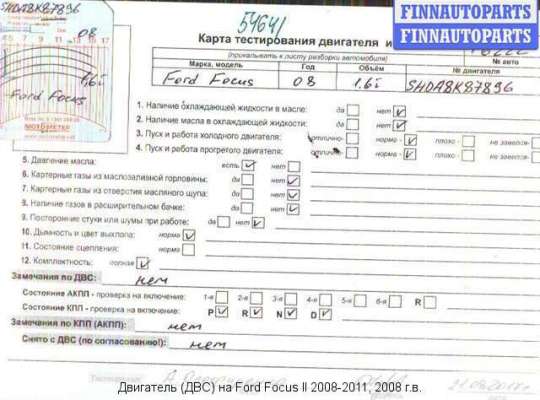 FINNAUTOPARTS
FINNAUTOPARTS
SHDA8K87896
08
1.6i
Ford Focus
МОТОМЕТКЕ
54641
Карта тестирования двигателя и
(прикалывать к листу разборки автомобиля)
Марка, модель Год Объём № двигателя № авто
Ford Focus 08 1.6i SHDA8K87896
1. Наличие охлаждающей жидкости в масле: да нет
2. Наличие масла в охлаждающей жидкости: да нет
3. Пуск и работа холодного двигателя: отлично- норма - плохо - не завелся-
4. Пуск и работа прогретого двигателя: отлично- норма - плохо - не завелся-
5. Давление масла: есть нет
6. Картерные газы из маслозаливной горловины: да нет
7. Картерные газы из отверстия масляного щупа: да нет
8. Наличие газов в расширительном бачке: да нет
9. Посторонние стуки или шумы при работе: да нет
10. Дымность и цвет выхлопа: норма
11. Состояние сцепления: норма
12. Комплектность: полная
Замечания по ДВС: нет
Состояние АКПП - проверка на включение: 1-я 2-я 3-я 4-я 5-я 6-я R
Состояние КПП - проверка на включение: P R N D
Замечания по КПП (АКПП): нет
Снято с ДВС (по согласованию!): нет
Двигатель (ДВС) на Ford Focus II 2008-2011, 2008 г.в.